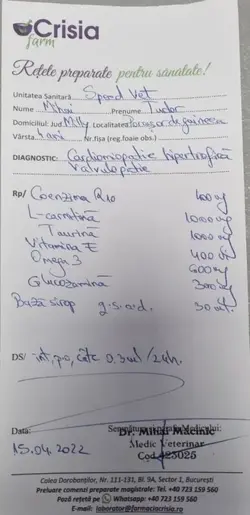 Crisia
farm
Rețete preparate pentru sănătate!
Unitatea Sanitară Speed Vet
Nume Mihai Prenume Tudor
Domiciliul: Jud Milly Localitatea Porcușor de guineea
Vârsta 4 ani Nr.fișa (reg.foaie obs.)
DIAGNOSTIC: Cardiomiopatie hipertrofică
Valvulopatie
Rp/ Coenzima Q10 100 mg
L-carnitină 1000 mg
Taurină 1000 mg
Vitamina E 400
Omega 3 600 mg
Glucozamină 300 mg
Bază sirop q.s.a.d. 30 ml.
DS/ int, p.o, câte 0.3 ml / 24h.
Data: Semnătura
15.04.2022 Dr. Mihai Măcinic
Medic Veterinar
Cod 423025
Calea Dorobanților, Nr. 111-131, Bl. 9A, Sector 1, București
Preluare comenzi preparate magistrale: Tel. +40 723 159 560
Pază rețetă pe Whatsapp: +40 723 159 560
E-mail: laborator@farmaciacrisia.ro